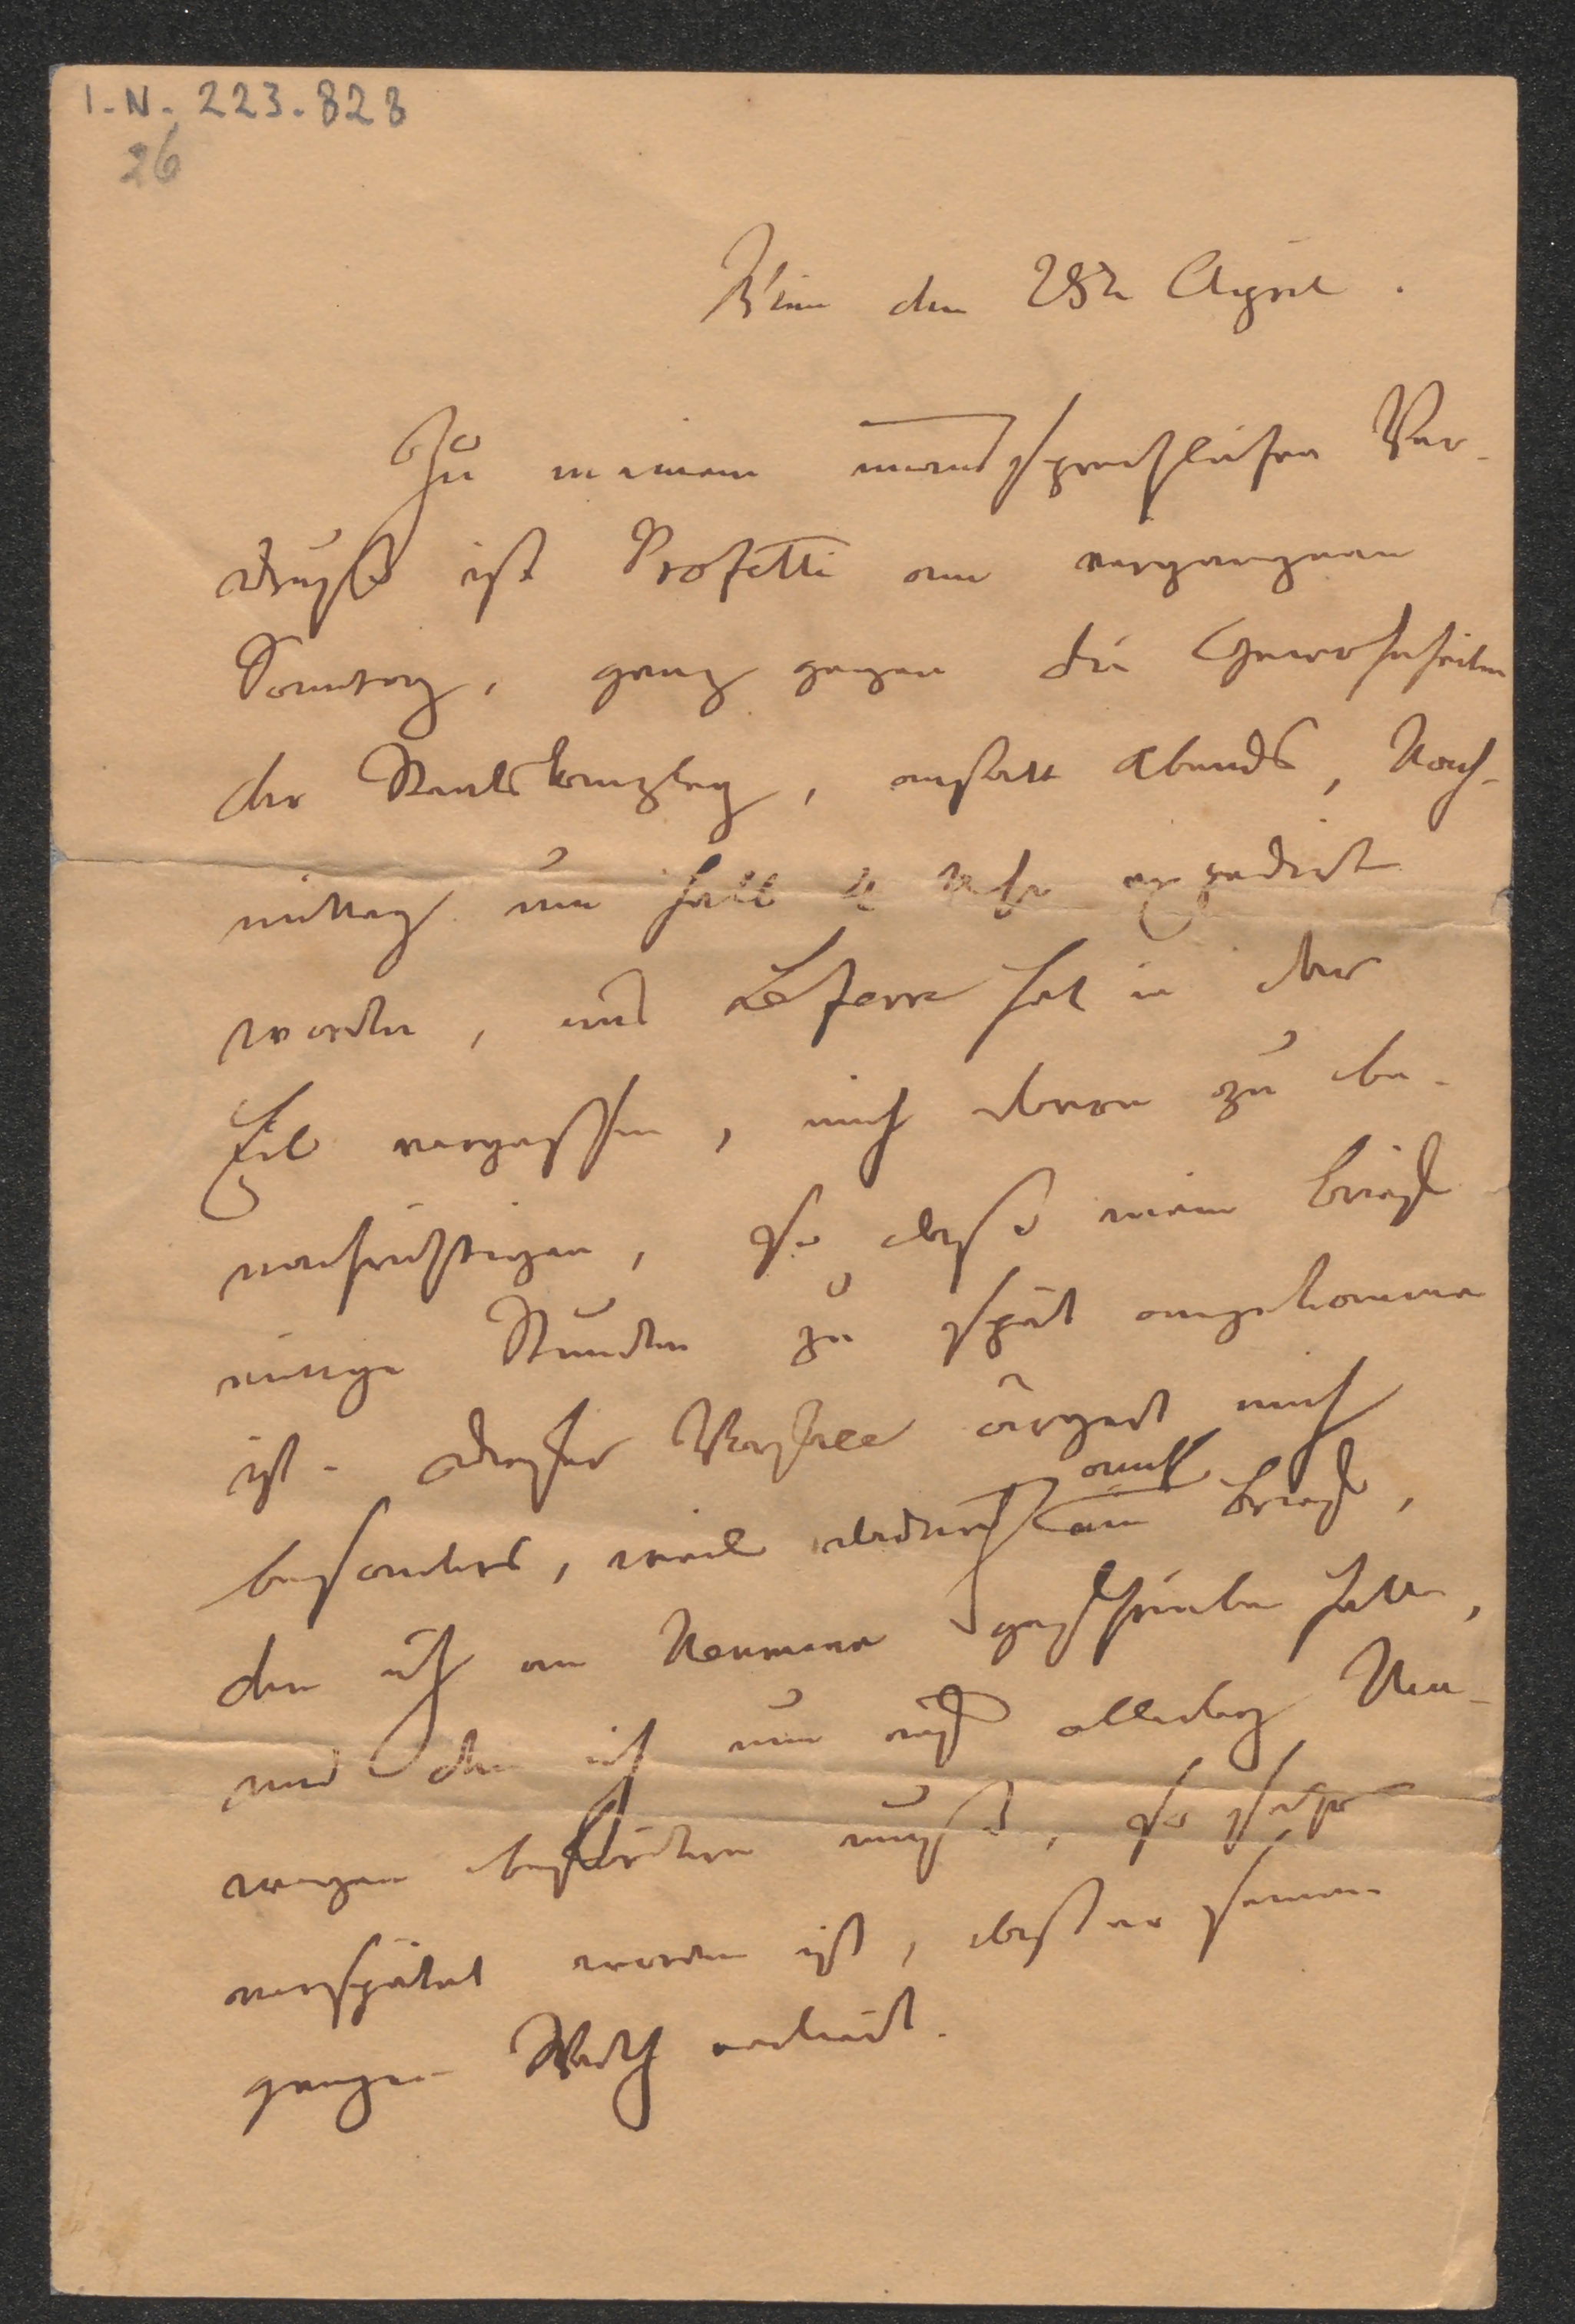 I.N. 223.828
26
Wien den 28t April.
Zu meinem unaussprechlichen Ver-
druß ist Profetti am vergangenen
Sonntag, ganz gegen die Gewohnheiten
der Staatskanzley, anstatt Abends, Nach-
mittag um halb 4 Uhr expedirt
worden, und Lefevre hat in der
Eil vergessen, mich davon zu be-
nachrichtigen, so daß mein Brief
einige Stunden zu spät angekommen
ist. Dieser Vorfall ärgert mich
besonders, weil dadurch auch ein Brief,
den ich an Neumann geschrieben hatte,
und den ich nun auf allerley Um-
wegen befördern mußte, so sehr
verspätet worden ist, daß er seinen
ganzen Werth verliert.